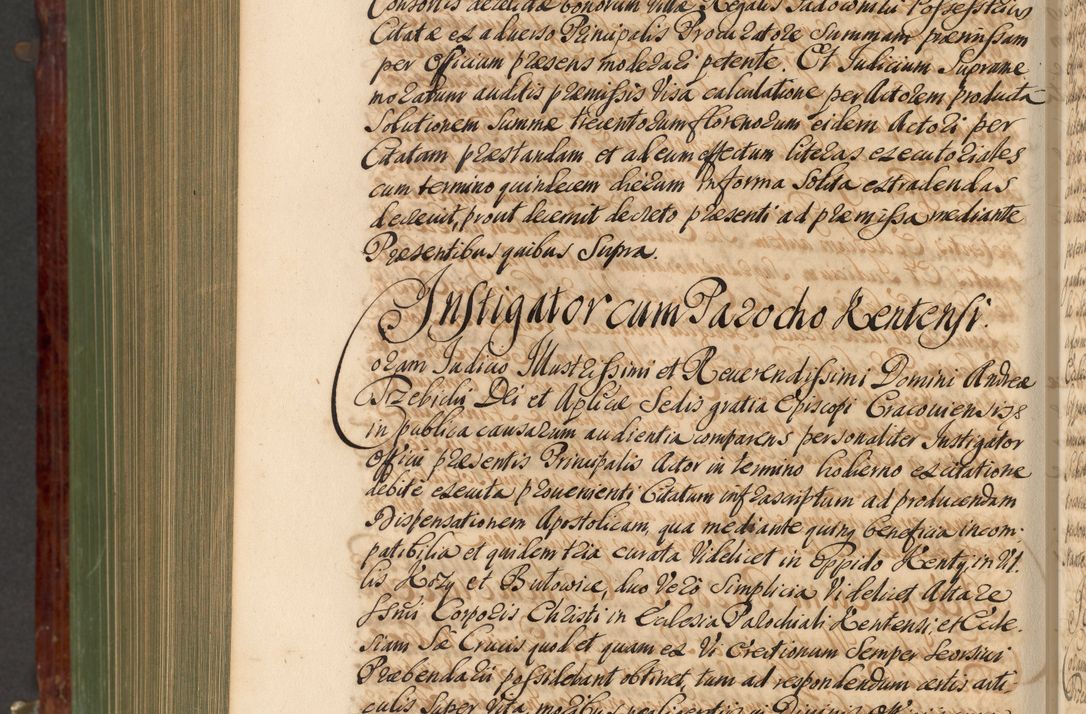 Consortis de relictæ bonorum Villæ Regalis Possessricis
Citatæ ex adverso Principalis Procuratore Summam præmissam
per Officium præsens moderari petente. Et Judicium Supræme
moratum auditis præmissis Visâ calculatione per Actorem productâ
Solutionem Summæ trecentorum florenorum eidem Actori per
Citatam præstandam et ad eum effectum literas executoriales
cum termino quindecem dierum in forma Solita extradendas
decrevit, prout decernit decreto præsenti ad præmissa mediante
Præsentibus quibus Supra.
Instigator cum Parocho Kentensi.
Coram Judicio Illustrissimi et Reverendissimi Domini Andreæ
Trzebicki Dei et Aplicæ Sedis gratia Episcopi Cracoviensis
in publica causarum audientia comparens personaliter Instigator
Officii præsentis Principalis Actor in termino hodierno ex citatione
debite executa provenienti Citatum infrascriptum ad producendam
Dispensationem Apostolicam, qua mediante quinq beneficia incom-
patibilia et quidem tria curata Videlicet in Oppido Kenty, in Vil-
lis Kozy et Bulowice, duo Verò Simplicia Videlicet Altare
SSmi Corporis Christi in Ecclesia Parochiali Kentensi, et Eccle-
siam Sæ Crucis quod et quam ex Vi erectionum Semper Seorsivi
Præbendarii possidebant obtinet, tum ad respondendum certis arti-
culis Super Vita moribus negligentiis in Divinis